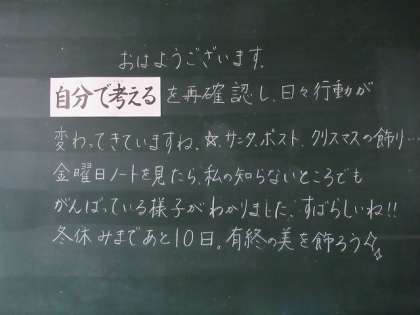 おはようございます。
自分で考える を再確認し、日々行動が
変わってきていますね。☆サンタ、ポスト、クリスマスの飾り…
金曜日ノートを見たら、私の知らないところでも
がんばっている様子がわかりました。すばらしいね!!
冬休みまであと10日。有終の美を飾ろう☆